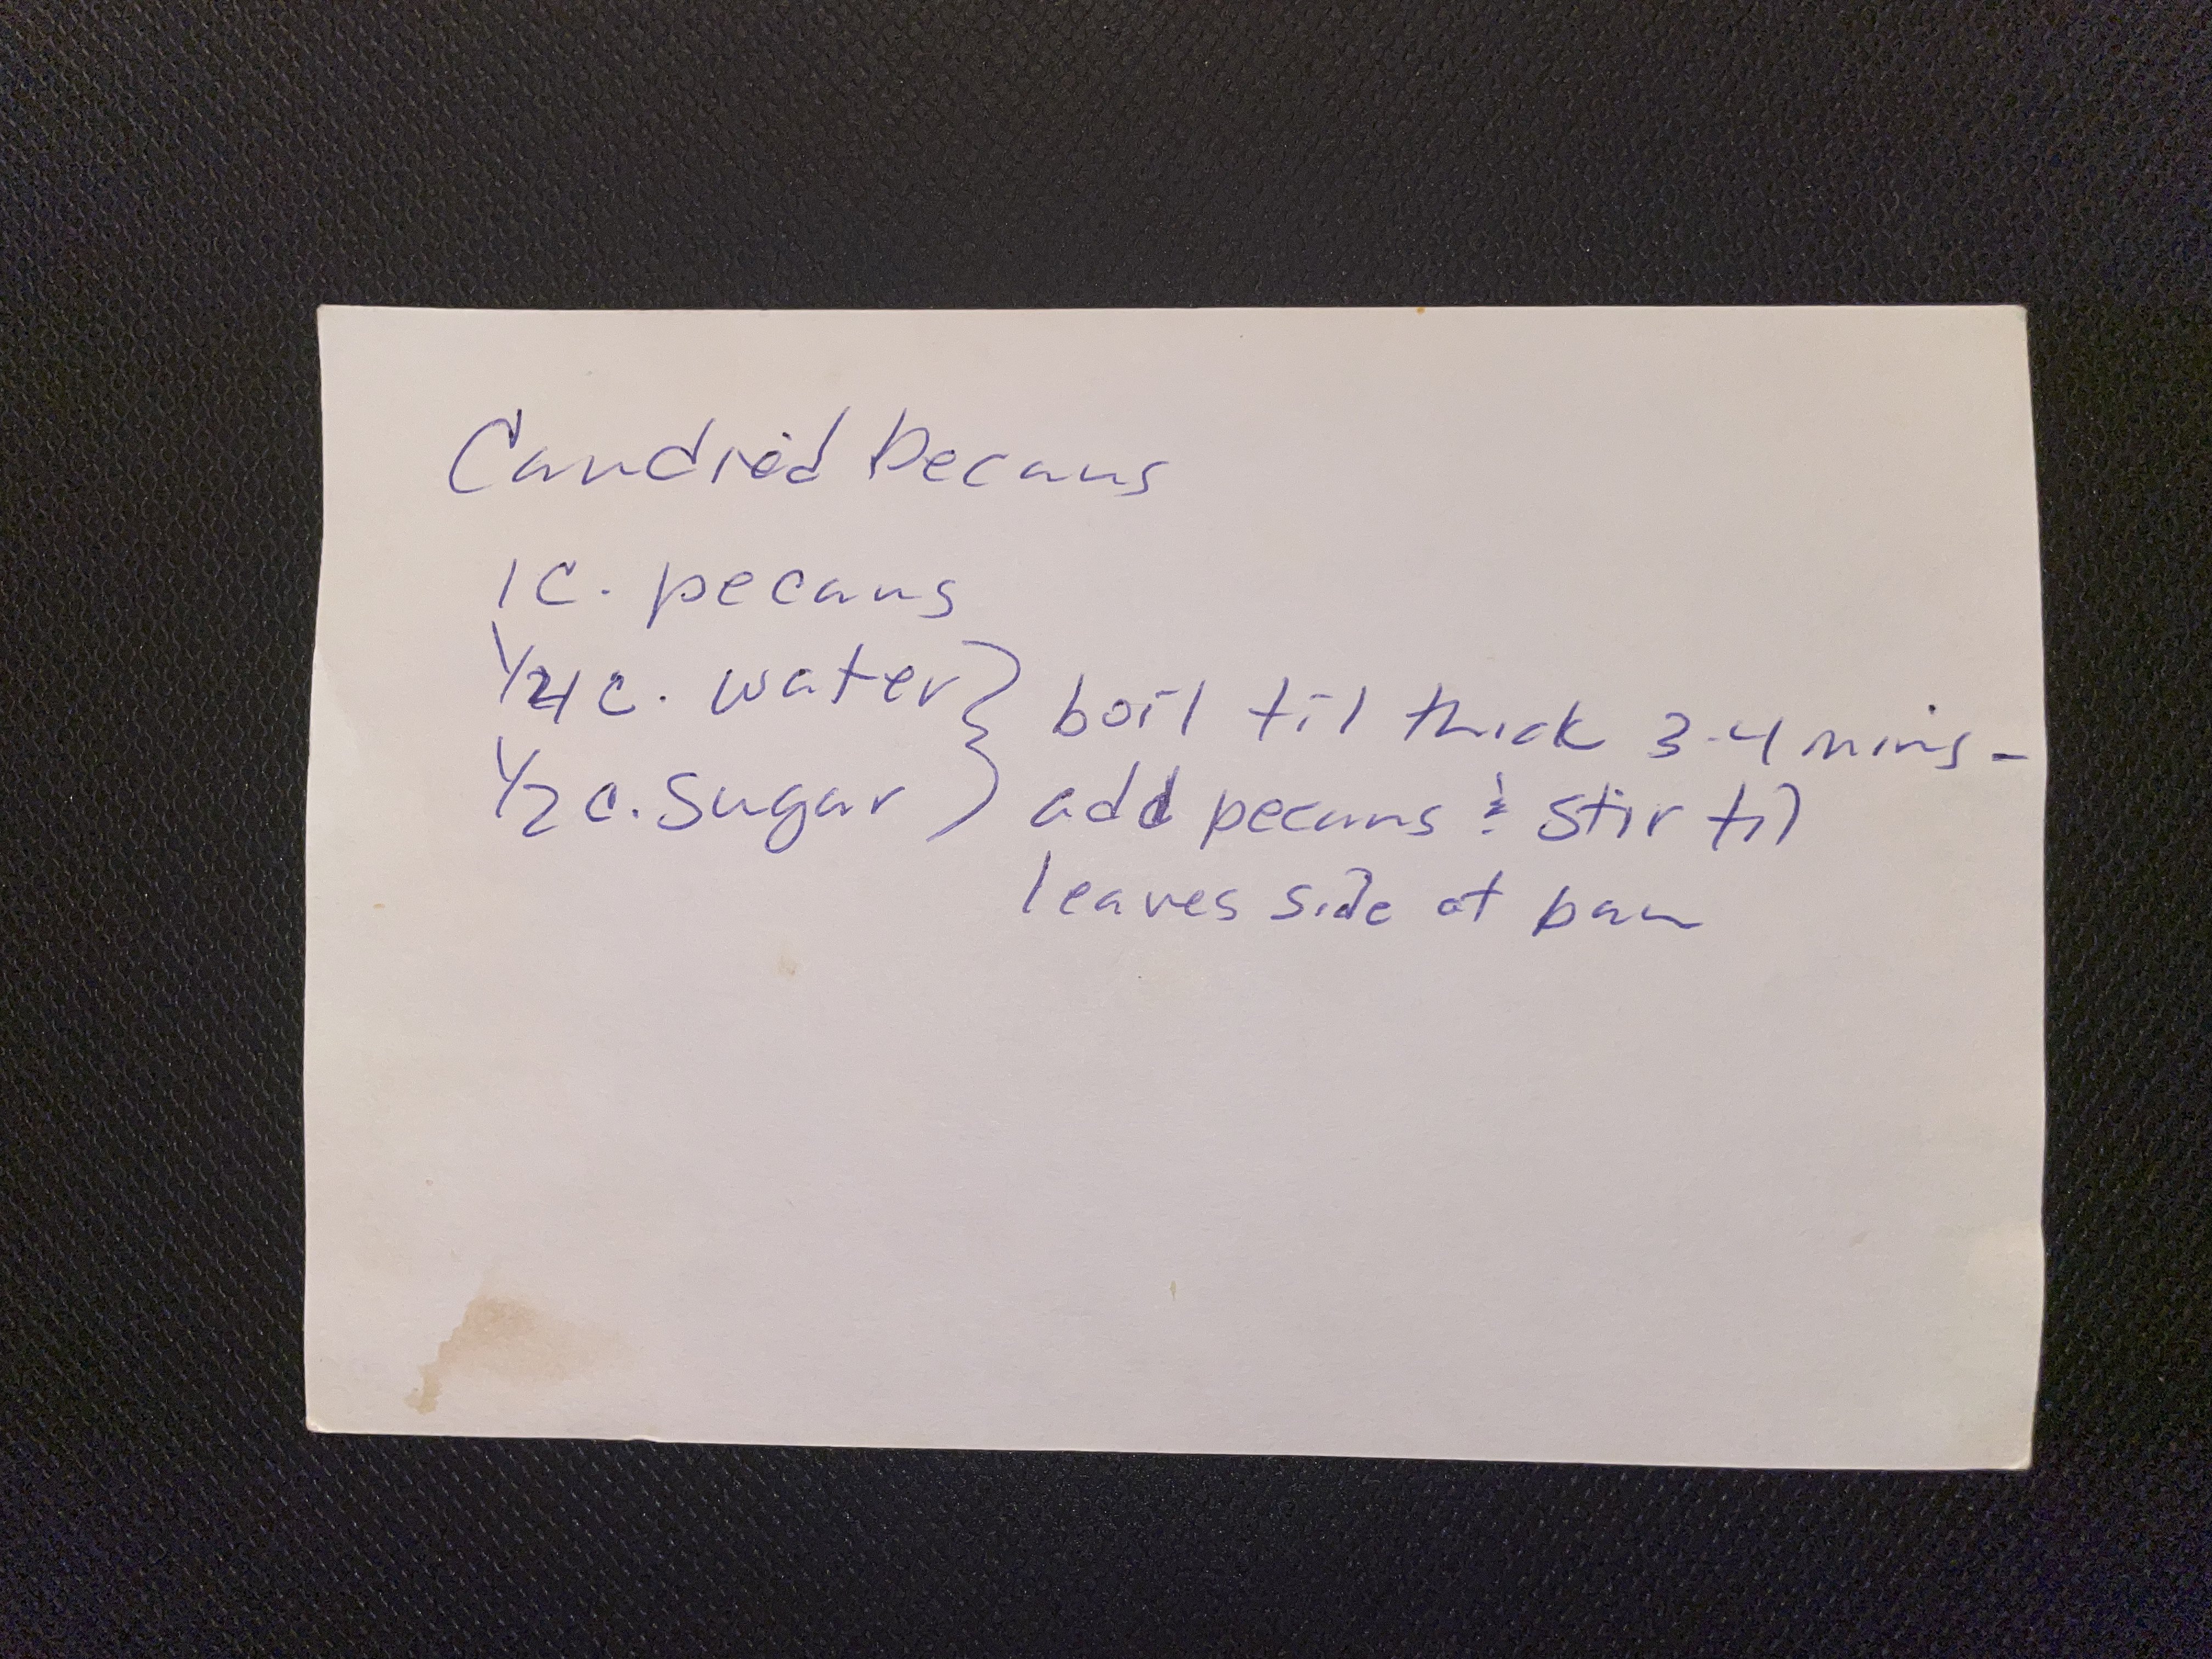 Candied Pecans
1 C. pecans
1/4 c. water } boil til thick 3-4 mins -
1/2 c. sugar } add pecans & stir til
leaves side of pan